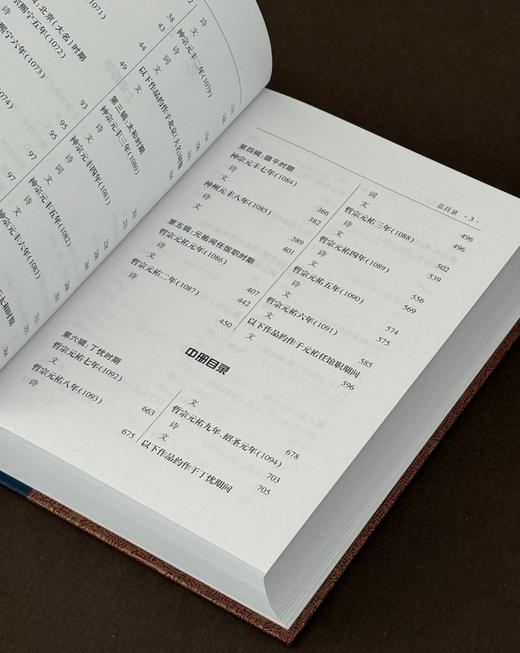 北京(大名)时期
熙宁五年(1072)
诗
文
宁六年(1073)
诗
文
38
43
44
49
93
95
95
97
97
神宗元丰二年(1079)
诗
文
第三辑:太和时期
神宗元丰三年(1080)
诗
文
神宗元丰四年(1081)
诗
文
神宗元丰五年(1082)
诗
文
总目录 ·3·
第四辑:德平时期
神宗元丰七年(1084)
诗
文 366
神州元丰八年(1085) 382
诗
文 389
第五辑:元祐间任馆职时期 401
哲宗元祐元年(1086)
诗
文 407
哲宗元祐二年(1087) 442
诗
450
词
文 496
哲宗元祐三年(1088) 496
诗
文 502
哲宗元祐四年(1089) 539
诗
文 556
哲宗元祐五年(1090) 569
诗
文 574
哲宗元祐六年(1091) 575
诗
文 585
以下作品约作于元祐任馆职期间 596
中册目录
第六辑:丁忧时期
哲宗元祐七年(1092)
诗
文 663
哲宗元祐八年(1093)
诗 675
文
哲宗元祐九年、绍圣元年(1094) 678
诗
文 703
以下作品约作于丁忧期间 705